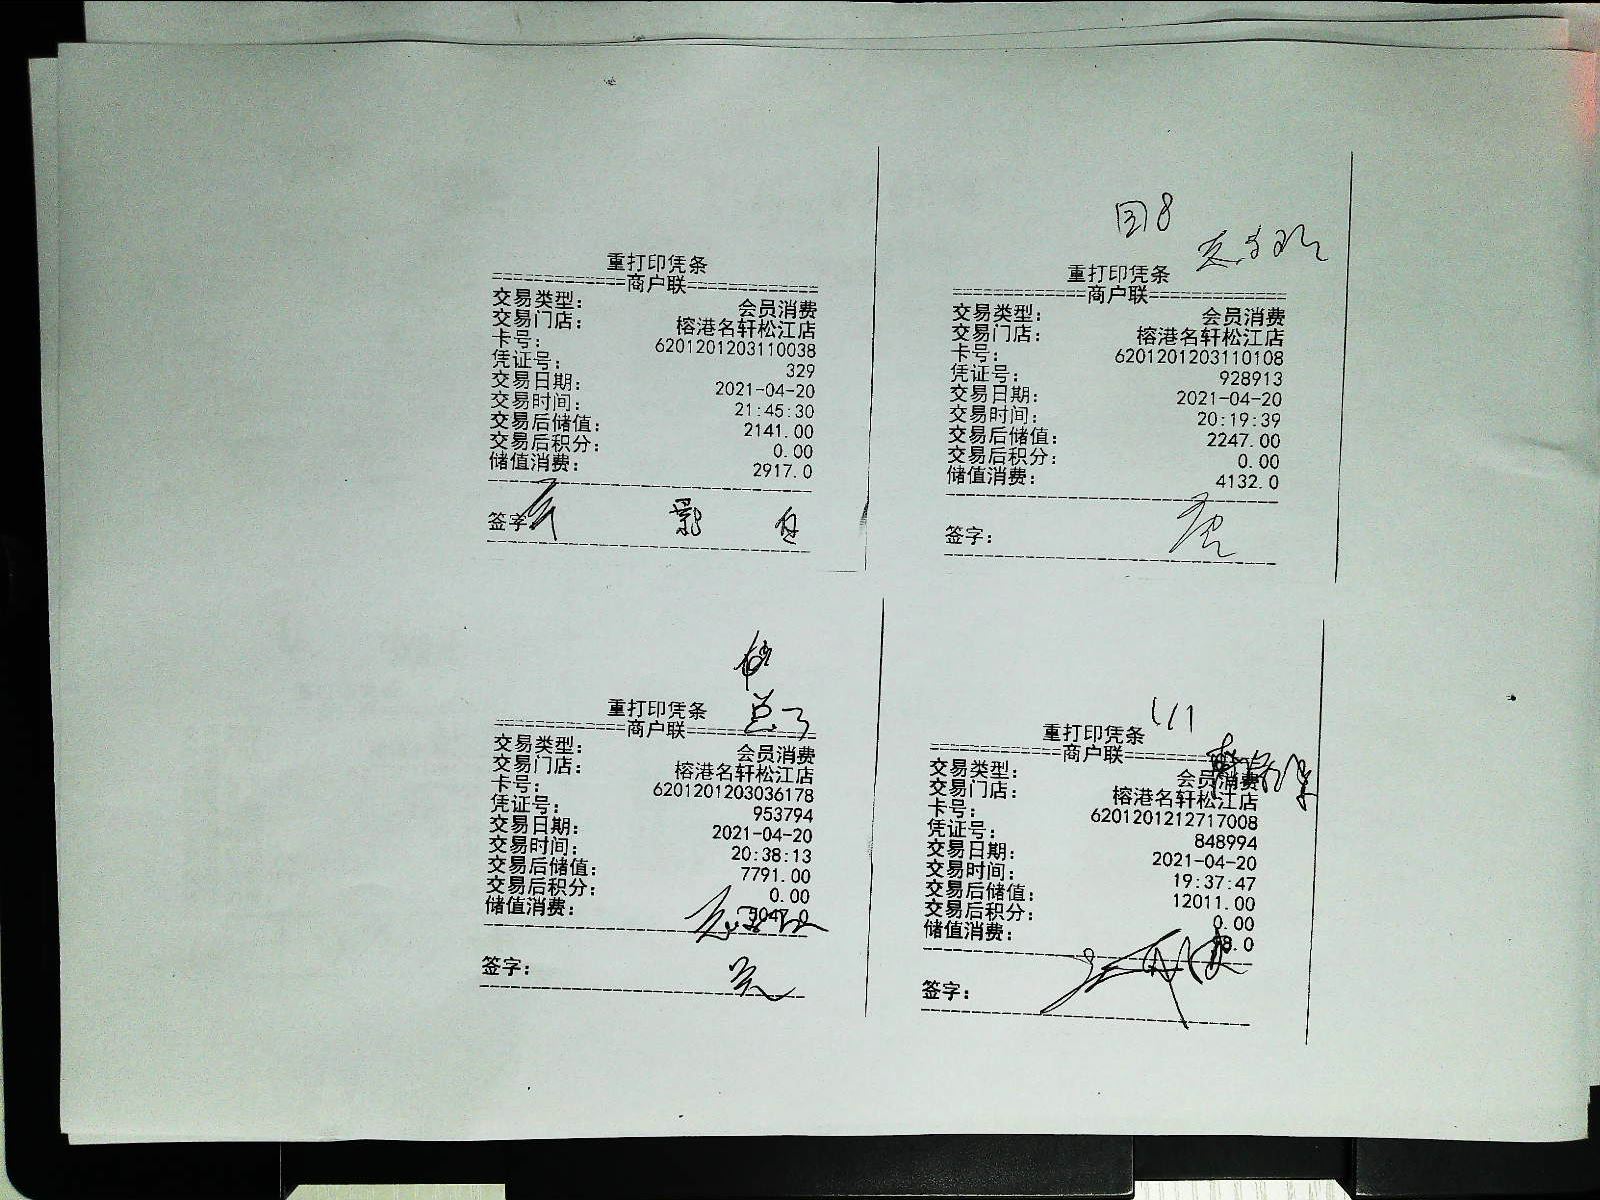 重打印凭条
============商户联============
交易类型: 会员消费
交易门店: 榕港名轩松江店
卡号: 6201201203110038
凭证号: 329
交易日期: 2021-04-20
交易时间: 21:45:30
交易后储值: 2141.00
交易后积分: 0.00
储值消费: 2917.0
签字:
8
重打印凭条
============商户联============
交易类型: 会员消费
交易门店: 榕港名轩松江店
卡号: 6201201203110108
凭证号: 928913
交易日期: 2021-04-20
交易时间: 20:19:39
交易后储值: 2247.00
交易后积分: 0.00
储值消费: 4132.0
签字:
重打印凭条
============商户联============
交易类型: 会员消费
交易门店: 榕港名轩松江店
卡号: 6201201203036178
凭证号: 953794
交易日期: 2021-04-20
交易时间: 20:38:13
交易后储值: 7791.00
交易后积分: 0.00
储值消费:
签字:
重打印凭条
============商户联============
交易类型: 会员消费
交易门店: 榕港名轩松江店
卡号: 6201201212717008
凭证号: 848994
交易日期: 2021-04-20
交易时间: 19:37:47
交易后储值: 12011.00
交易后积分: 0.00
储值消费:
签字: